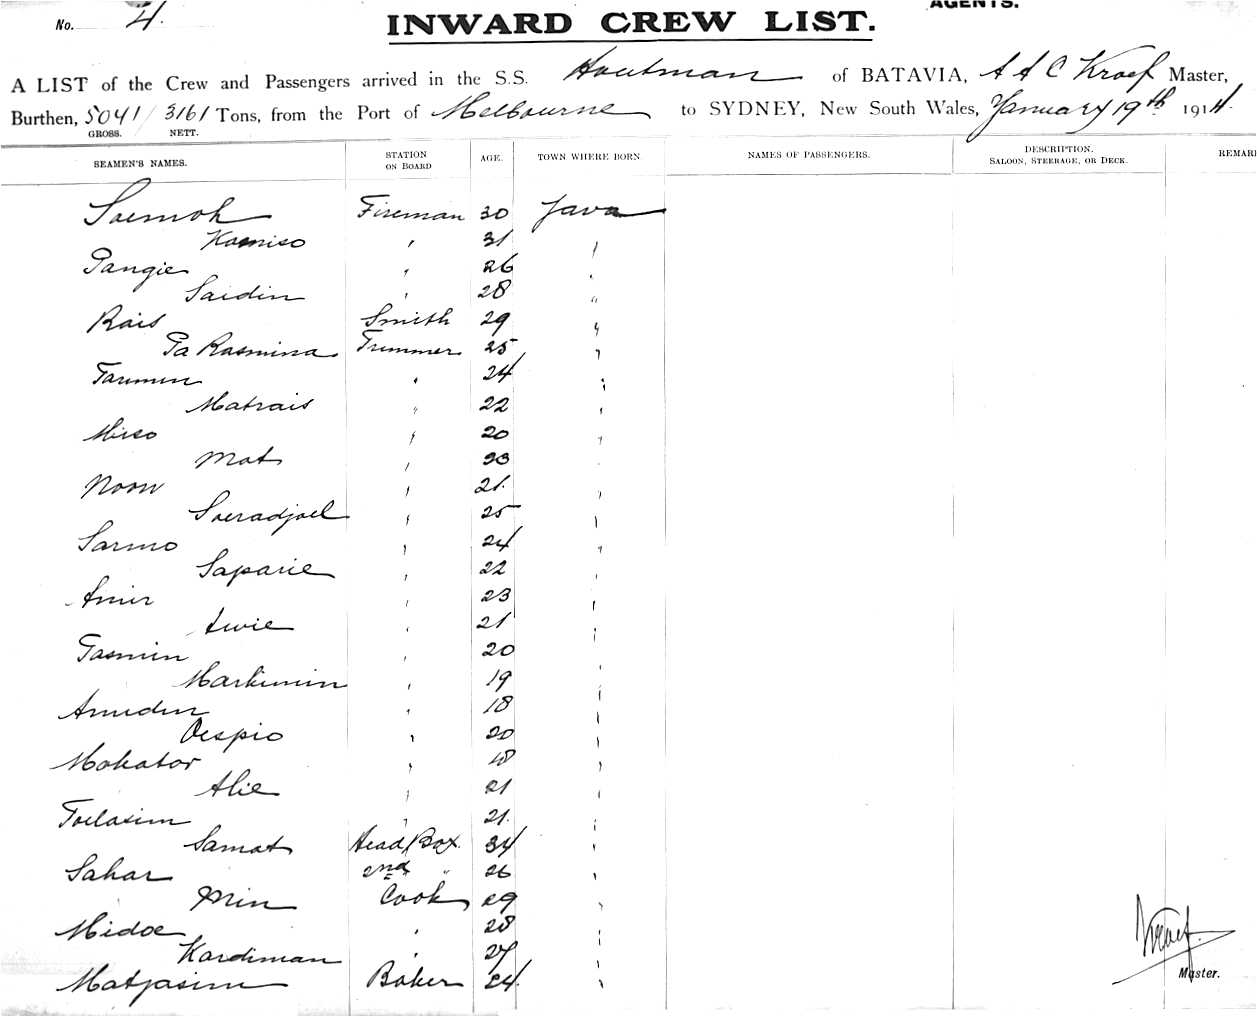 AGENTS.
No. 4.
INWARD CREW LIST.
A LIST of the Crew and Passengers arrived in the S.S. Houtman of BATAVIA, A A C Kroef Master,
Burthen, 5041/3161 Tons, from the Port of Melbourne to SYDNEY, New South Wales, January 19th 1914.
GROSS. NETT.
SEAMEN'S NAMES. STATION ON BOARD AGE. TOWN WHERE BORN NAMES OF PASSENGERS. DESCRIPTION. SALOON, STEERAGE, OR DECK. REMAR
Soemoh Fireman 30 Java
Kasmiso " 31 "
Pangie " 26 "
Saidin " 28 "
Rais Smith 29 "
Pa Rasmina Trimmer 25 "
Tarimin " 24 "
Matrais " 22 "
Mirso " 20 "
Mat " 23
Noor " 21 "
Soeradjoel " 25 "
Sarmo " 24 "
Saparie " 22 "
Amir " 23 "
Awie " 21 "
Tasmin " 20 "
Markimin " 19 "
Amidin " 18 "
Oespio " 20 "
Mokator " 18 "
Alie " 21 "
Toelasim " 21 "
Samat Head Box 34 "
Sahar 2nd " 26 "
Min Cook 29 "
Midoe " 28 "
Kardiman " 27 "
Matjasim Baker 24 "
Kroef.
Master.